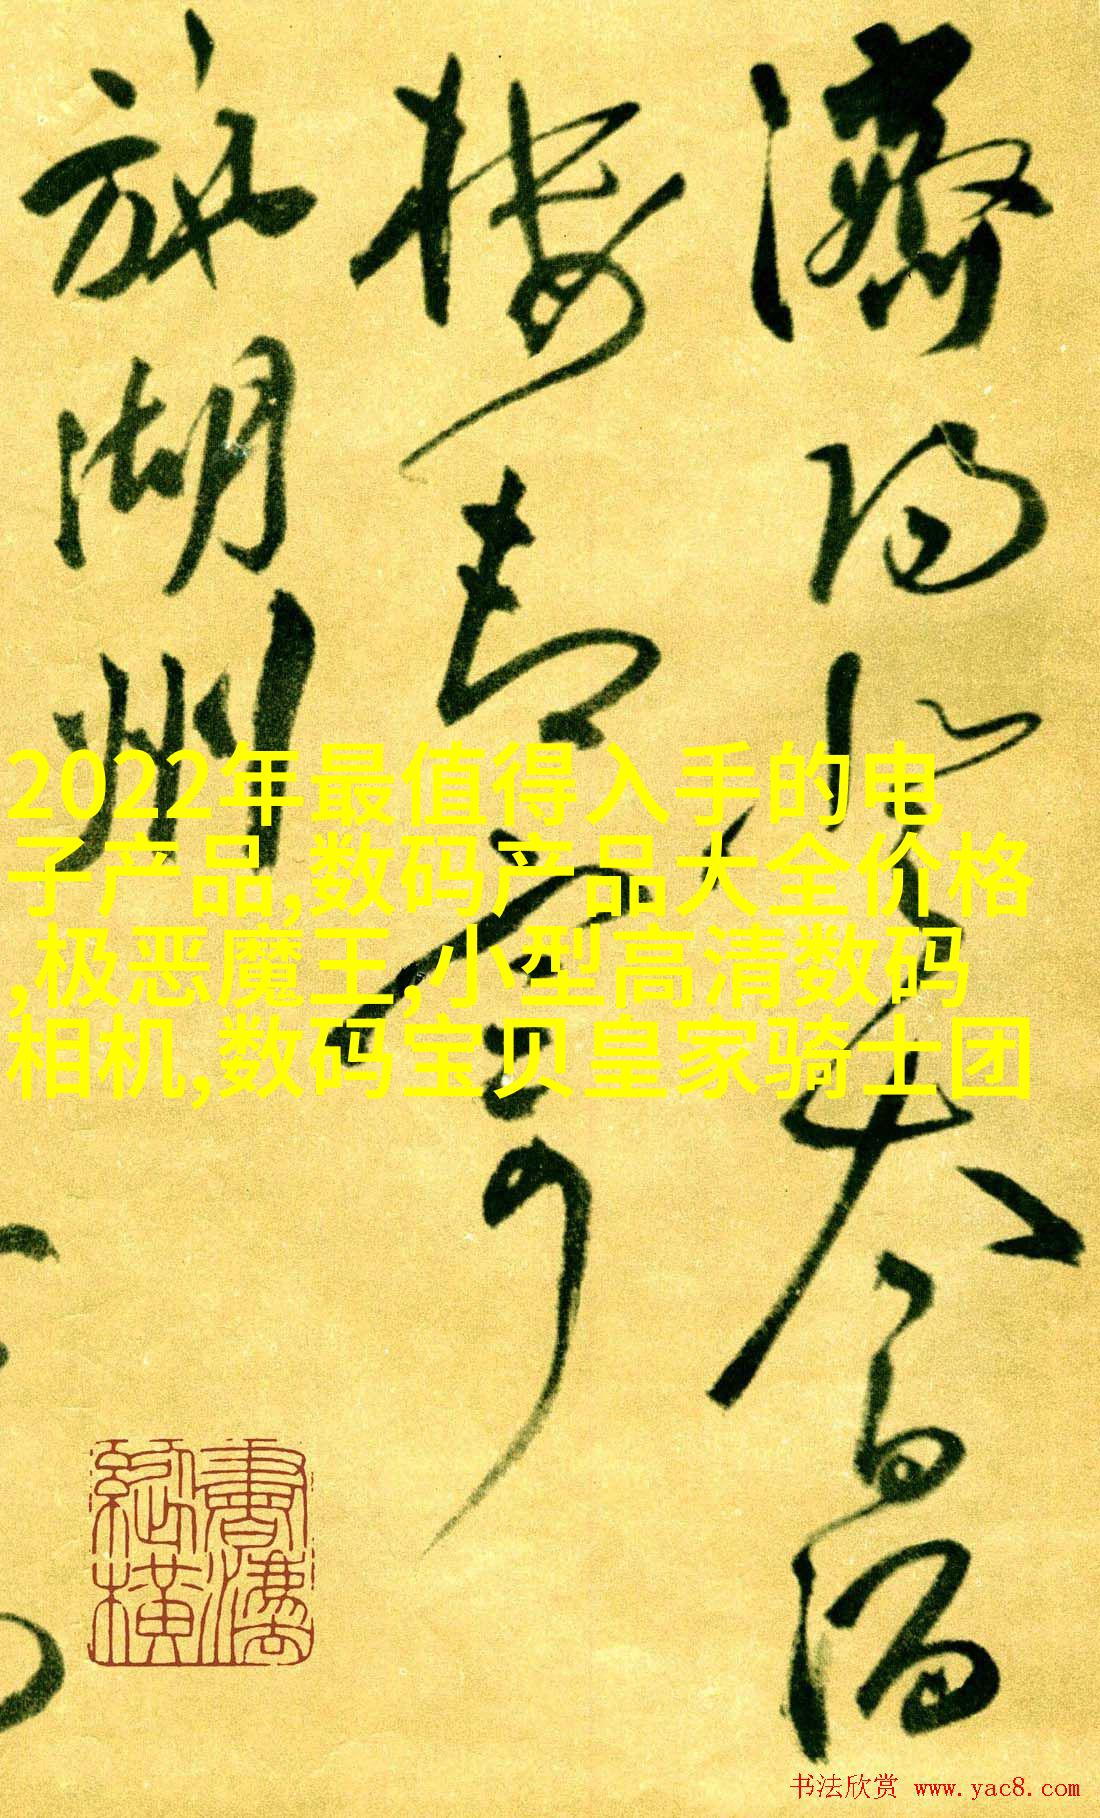 濟陽登太白酒
樓却寄
施湖州
2022年最值得入手的电
子产品,数码产品大全价格
,极恶魔王,小型高清数码
相机,数码宝贝皇家骑士团
书法欣赏 www.yac8.com